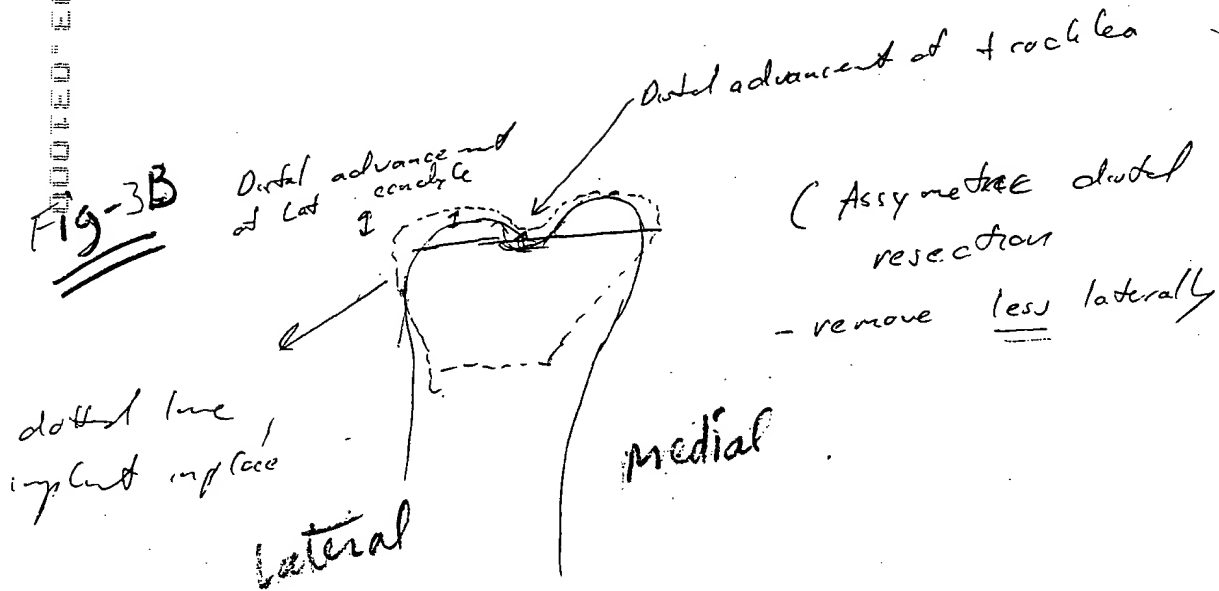 Distal advancement of trochlea
Fig-3B
Distal advancement
of Lat condyle
(Assymetric distal
resection
- remove less laterally
dotted line
implant inplace
medial
Lateral